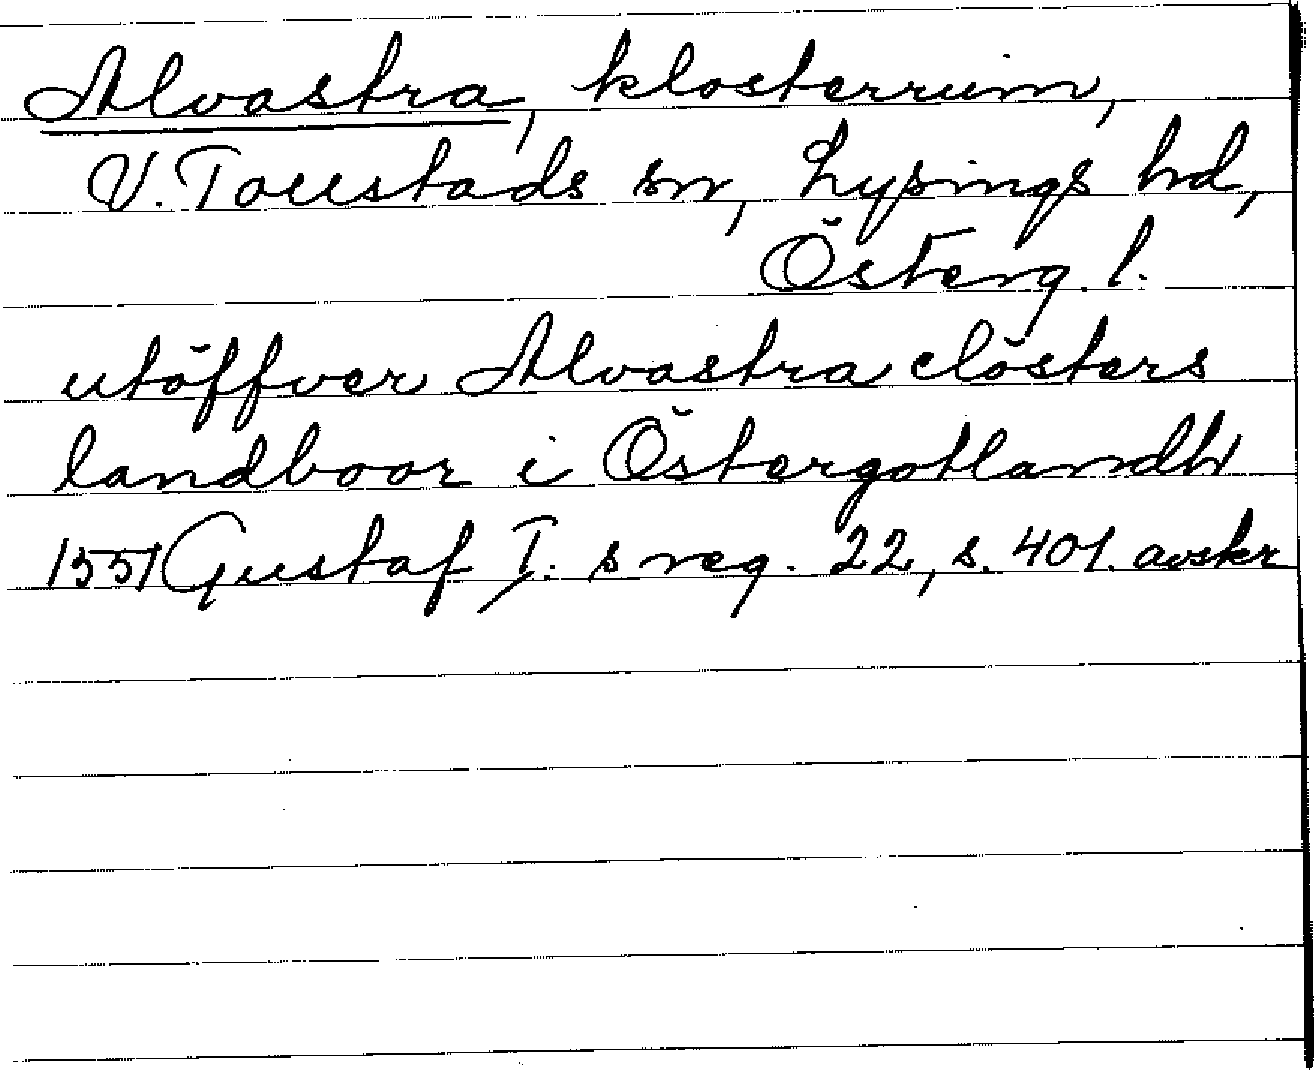 Alvastra, klosterruin,
V. Tollstads sn, Lysings hd,
Österg. l.
utöffver Alvastra clösters
landboor i Östergotlandh
1551 Gustaf I:s reg. 22, s. 401. avskr